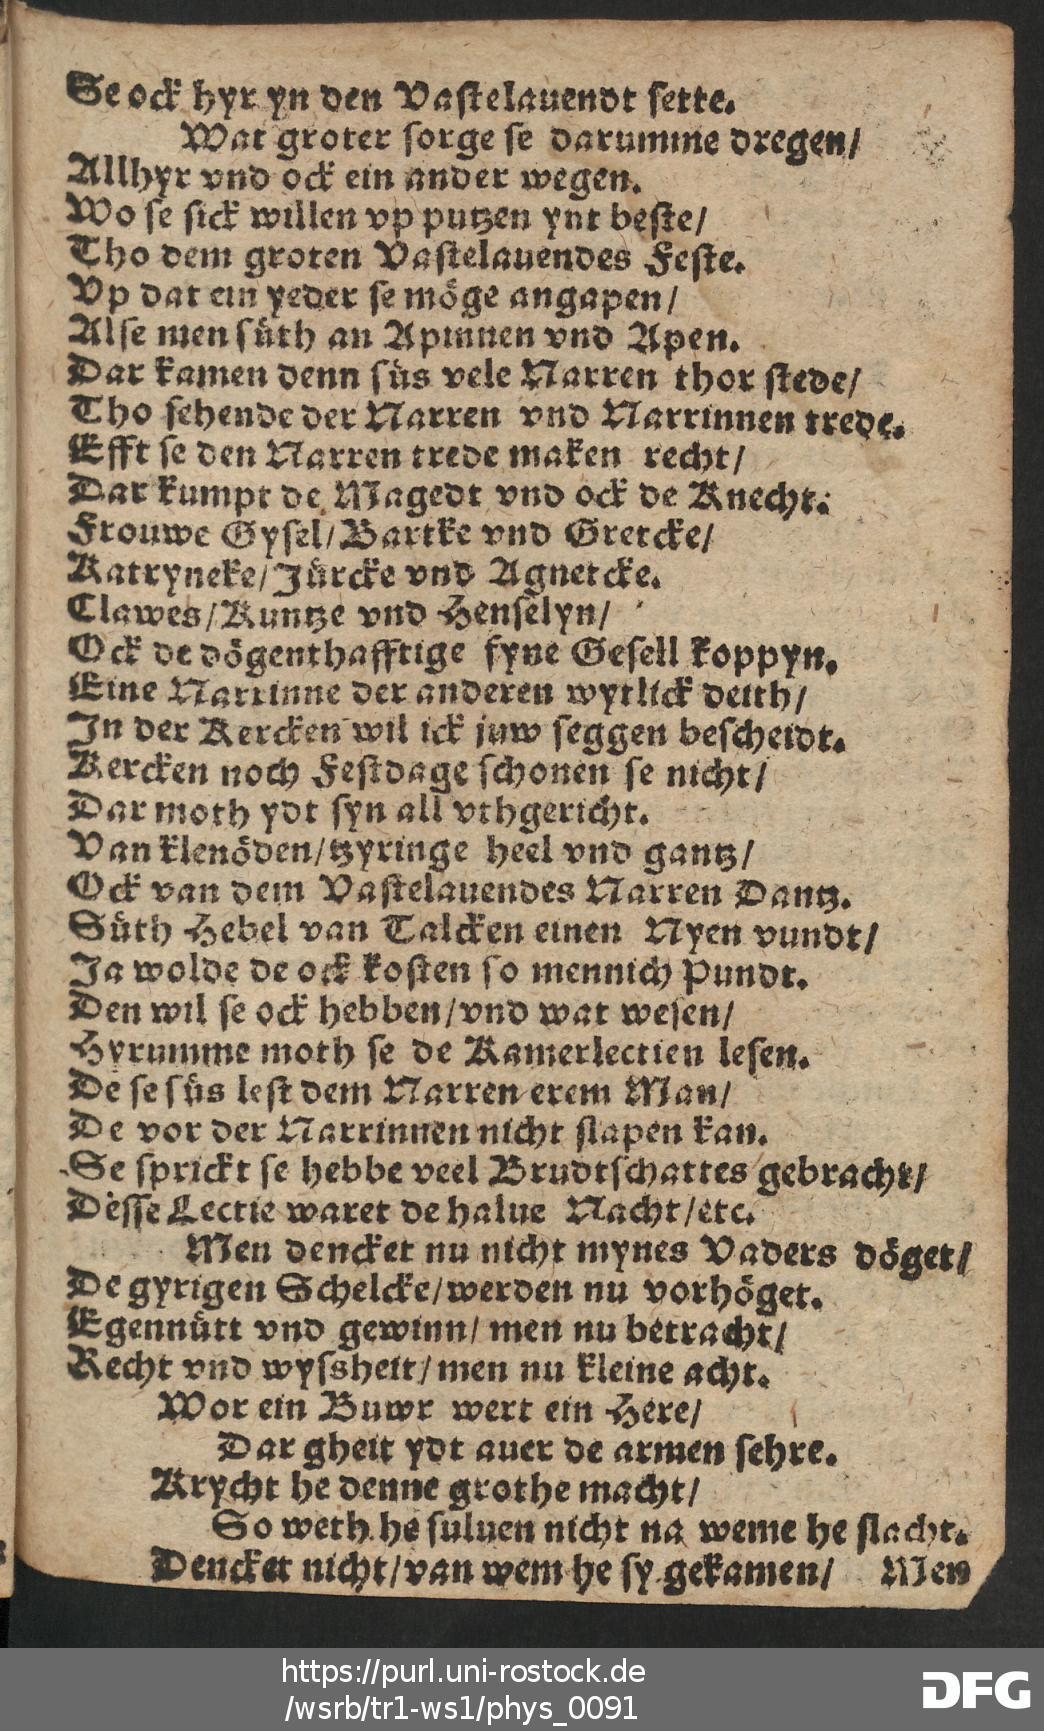 Se ock hyr yn den Vastelauendt sette.
Wat groter sorge se darumme dregen/
Allhyr vnd ock ein ander wegen.
Wo se sick willen vp putzen ynt beste/
Tho dem groten Vastelauendes Feste.
Vp dat ein yeder se möge angapen/
Alse men süth an Apinnen vnd Apen.
Dar kamen denn süs vele Narren thor stede/
Tho sehende der Narren vnd Narrinnen trede.
Efft se den Narren trede maken recht/
Dar kumpt de Magedt vnd ock de Knecht.
Frouwe Gysel/ Bartke vnd Gretcke/
Katryneke/ Jürcke vnd Agnetcke.
Clawes/ Kuntze vnd Henselyn/
Ock de dögenthafftige fyne Gesell koppyn.
Eine Narrinne der anderen wytlick deith/
In der Kercken wil ick juw seggen bescheidt.
Kercken noch Festdage schonen se nicht/
Dar moth ydt syn all vthgericht.
Van klenöden/ tzyringe heel vnd gantz/
Ock van dem Vastelauendes Narren Dantz.
Süth Hebel van Talcken einen Nyen vundt/
Ja wolde de ock kosten so mennich Pundt.
Den wil se ock hebben/ vnd wat wesen/
Hyrumme moth se de Kamerlectien lesen.
De se süs lest dem Narren erem Man/
De vor der Narrinnen nicht slapen kan.
Se sprickt se hebbe veel Brudtschattes gebracht/
Desse Lectie waret de halue Nacht/ etc.
Men dencket nu nicht mynes Vaders döget/
De gyrigen Schelcke/ werden nu vorhöget.
Egennütt vnd gewinn/ men nu betracht/
Recht vnd wyssheit/ men nu kleine acht.
Wor ein Buwr wert ein Here/
Dar gheit ydt auer de armen sehre.
Krycht he denne grothe macht/
So weth he suluen nicht na weme he slacht.
Dencket nicht/ van wem he sy gekamen/ Men
https://purl.uni-rostock.de
/wsrb/tr1-ws1/phys_0091
DFG